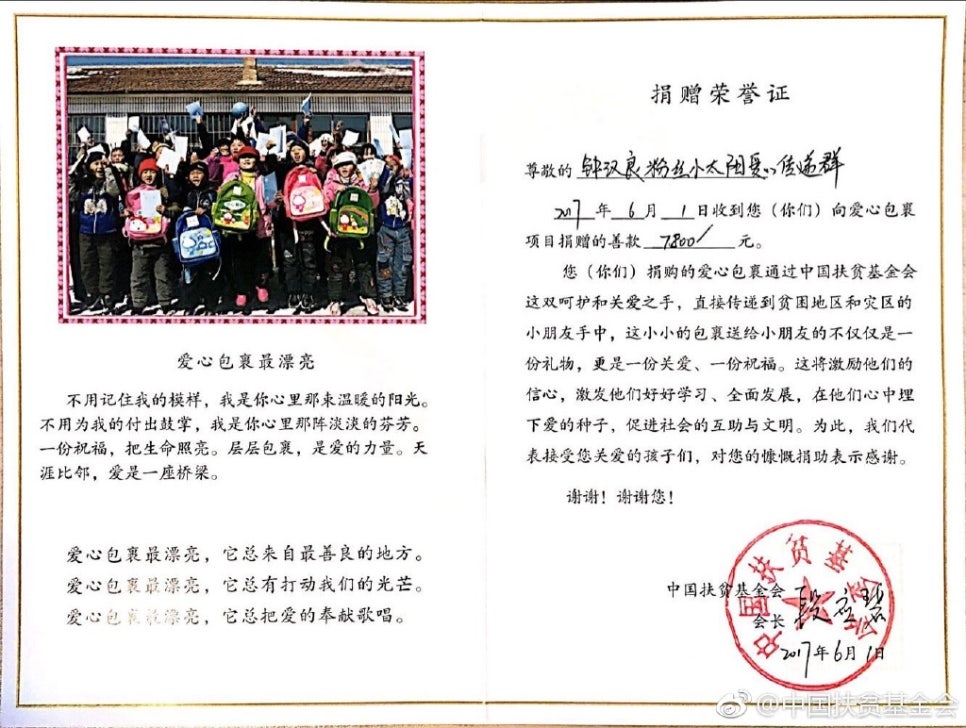 爱心包裹最漂亮
不用记住我的模样，我是你心里那束温暖的阳光。
不用为我的付出鼓掌，我是你心里那阵淡淡的芬芳。
一份祝福，把生命照亮。层层包裹，是爱的力量。天
涯比邻，爱是一座桥梁。
爱心包裹最漂亮，它总来自最善良的地方。
爱心包裹最漂亮，它总有打动我们的光芒。
爱心包裹最漂亮，它总把爱的奉献歌唱。
捐赠荣誉证
尊敬的 钟汉良粉丝小太阳爱心传递群
2017 年 6 月 1 日收到您（你们）向爱心包裹
项目捐赠的善款 7800/ 元。
您（你们）捐购的爱心包裹通过中国扶贫基金会
这双呵护和关爱之手，直接传递到贫困地区和灾区的
小朋友手中，这小小的包裹送给小朋友的不仅仅是一
份礼物，更是一份关爱、一份祝福。这将激励他们的
信心，激发他们好好学习、全面发展，在他们心中埋
下爱的种子，促进社会的互助与文明。为此，我们代
表接受您关爱的孩子们，对您的慷慨捐助表示感谢。
谢谢！谢谢您！
中国扶贫基金会
会长 段应碧
2017年6月1日
中国扶贫基金会
@中国扶贫基金会